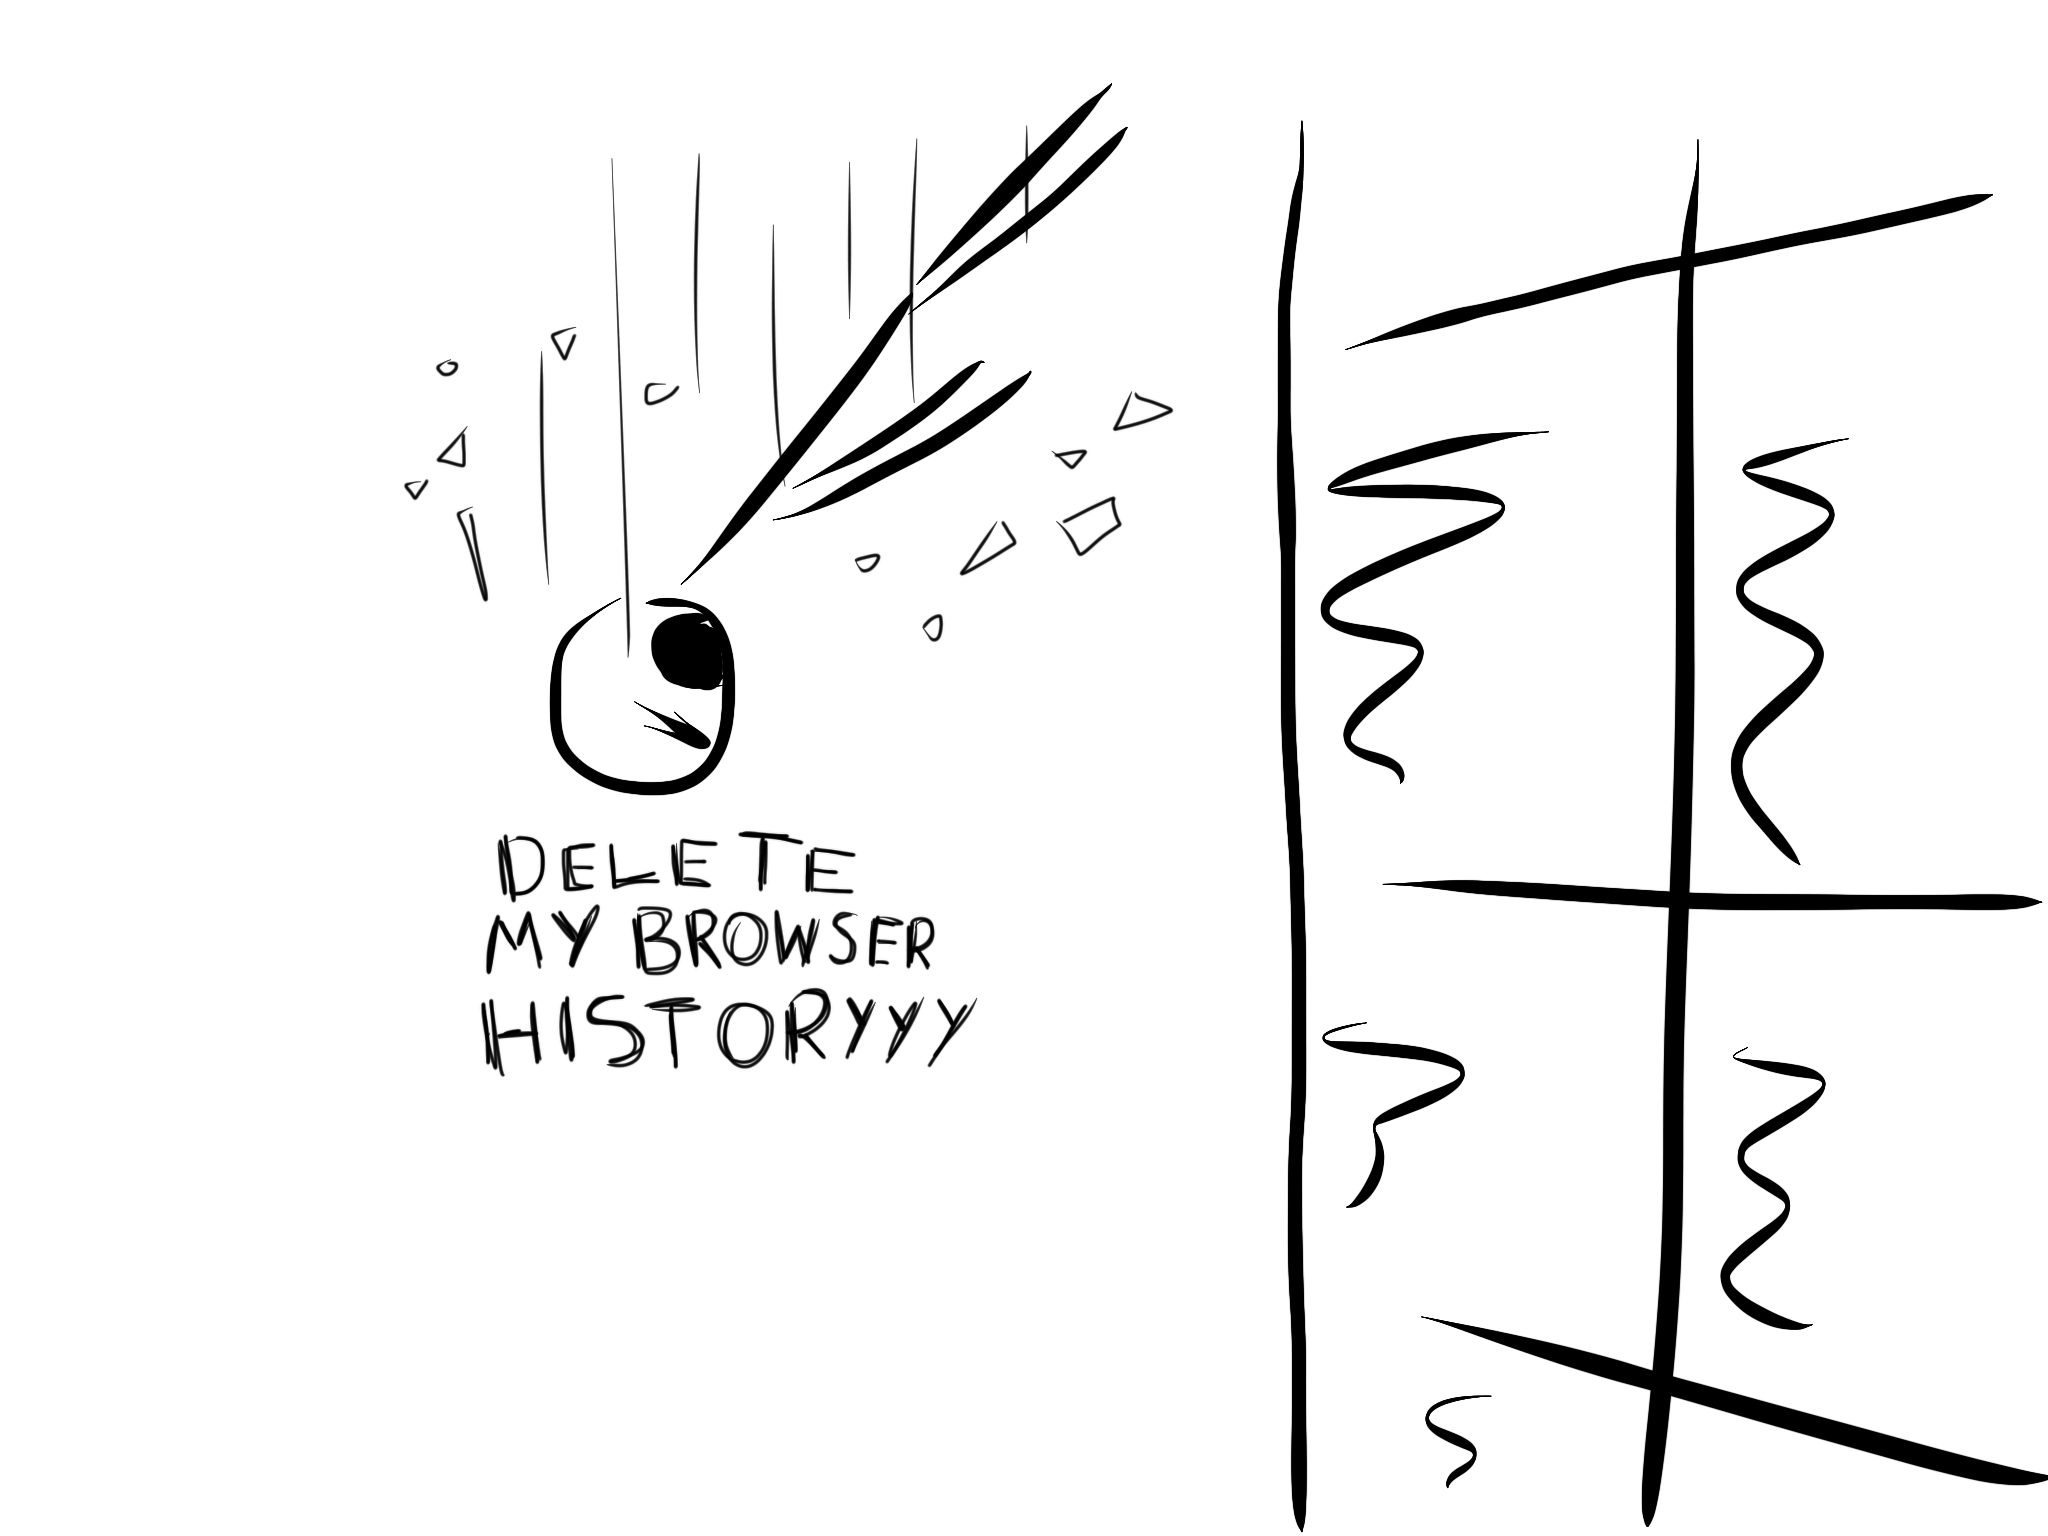 DELETE
MY BROWSER
HISTORYYY